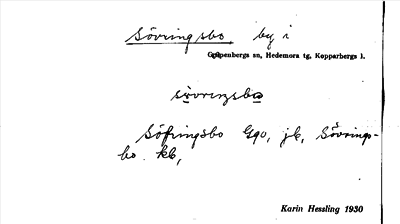 Sövringsbo by i
Garpenbergs sn, Hedemora tg, Kopparbergs l.
sövvrıŋsbo
Söfringsbo Ggo, jk, Sövrings-
bo kb,
Karin Hessling 1930